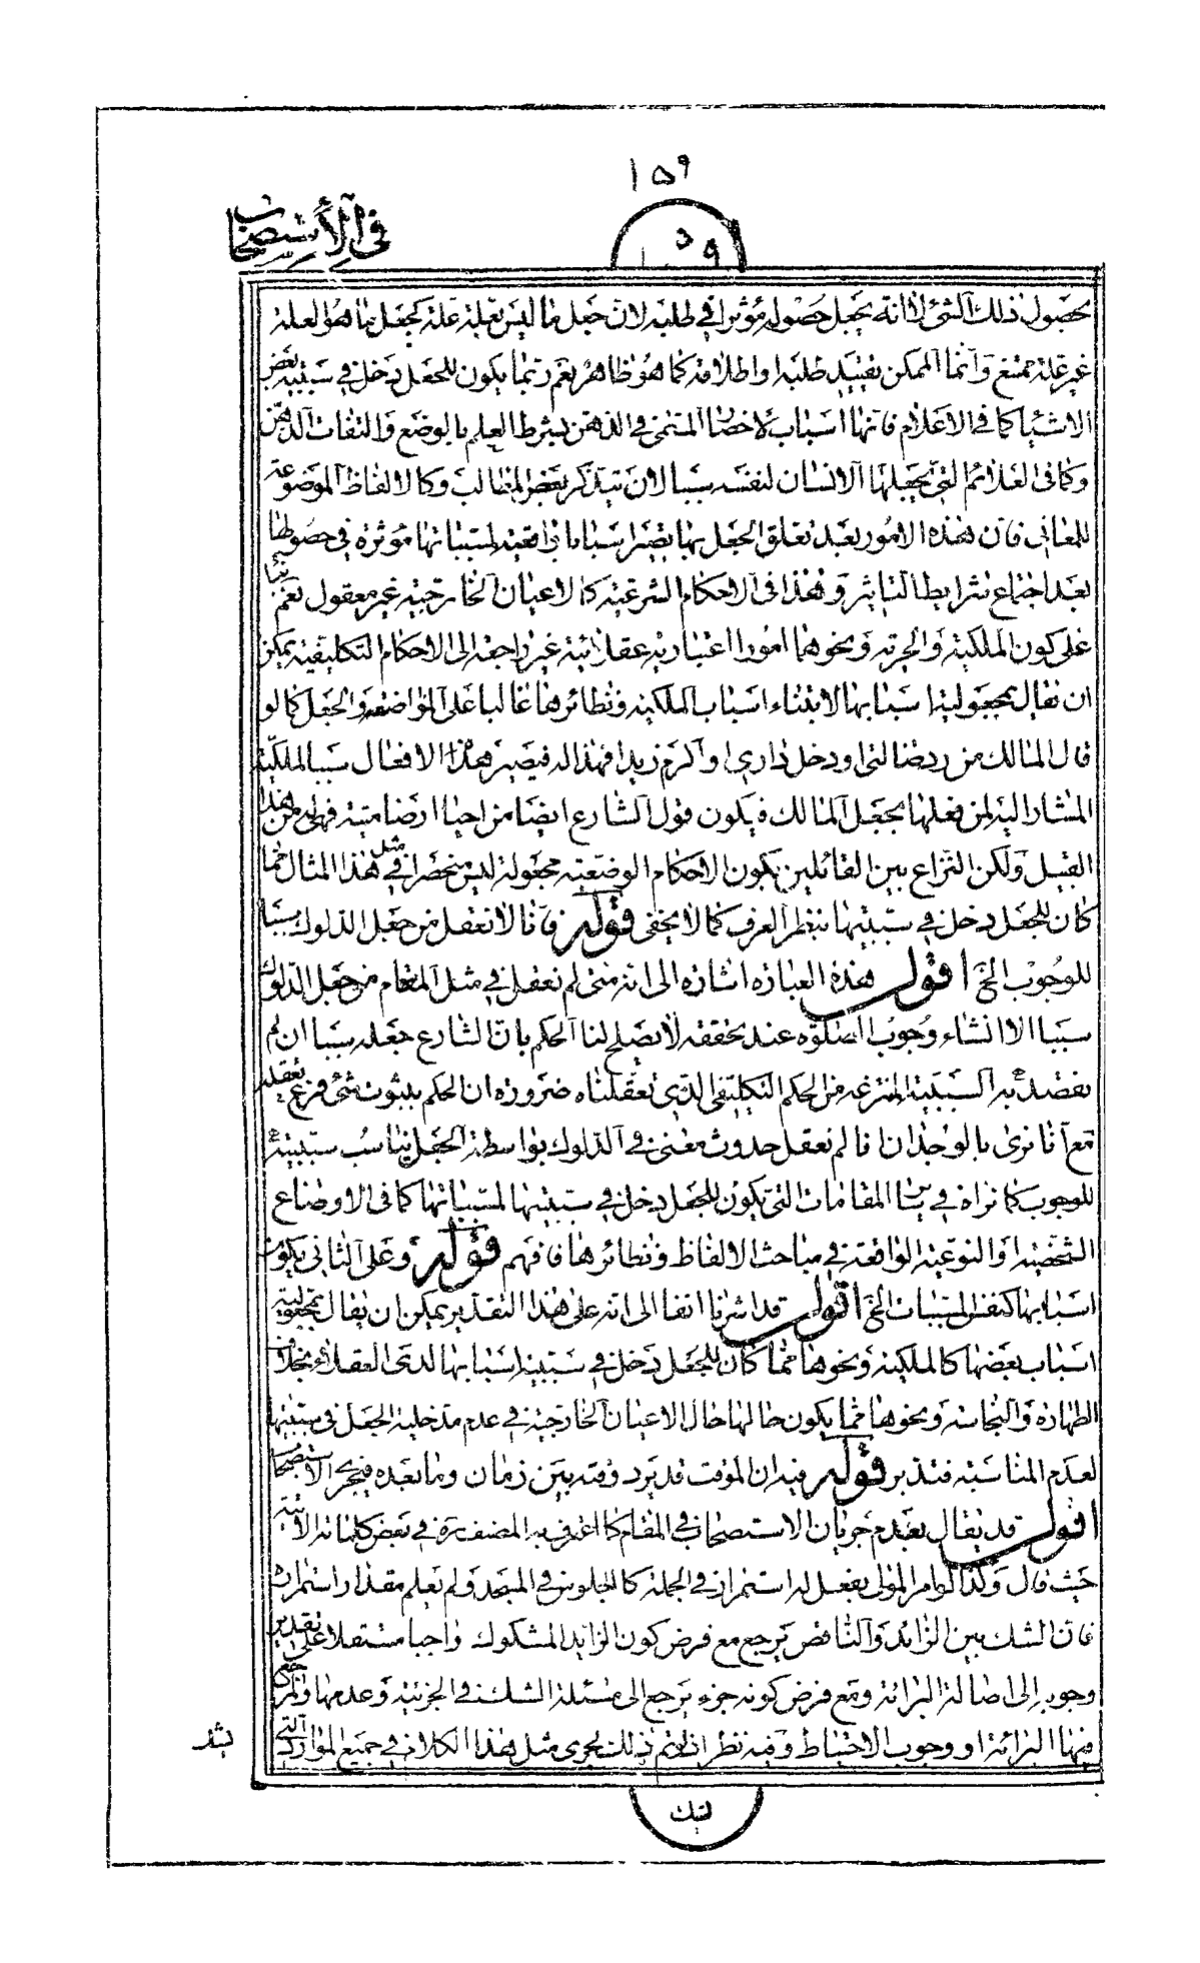 ١٥٩
في الاستصحاب
١٥٩
بحصول ذلك الشئ لا انه يجعل حصوله مؤثرا في طلبه لان جعل ما ليس بعلة علة كجعل ما هو العلة
غير علة ممتنع وانما الممكن تقييد طلبه او اطلاقه كما هو ظاهر نعم ربما يكون للجعل دخل في سببية بعض
الاشياء كما في الاعلام فانها اسباب لاحضار المسمى في الذهن بشرط العلم بالوضع والتفات الذهن
وكما في العلائم التي يجعلها الانسان لنفسه سببا لان يتذكر بعض المطالب وكالالفاظ الموضوعة
للمعاني فان هذه الامور بعد تعلق الجعل بها تصير اسبابا واقعية لمسبباتها مؤثرة في حصولها
بعد اجتماع شرايط التاثير وهذا في الاحكام الشرعية كالاعيان الخارجية غير معقول نعم بناء
على كون الملكية والحرية ونحوهما امورا اعتبارية عقلائية غير راجعة الى الاحكام التكليفية يمكن
ان يقال بمجعولية اسبابها لابتناء اسباب الملكية ونظائرها غالبا على المواضعة والجعل كما لو
قال المالك من رد ضالتي او دخل داري او اكرم زيدا فهذا له فيصير هذه الافعال سببا لملكية
المشار اليه لمن فعلها بجعل المالك فيكون قول الشارع ايضا من احيا ارضا ميتة فهي له من هذا
القبيل ولكن النزاع بين القائلين بكون الاحكام الوضعية مجعولة ليس منحصرا في مثل هذا المثال مما
كان للجعل دخل في سببيتها بنظر العرف كما لا يخفى قوله فانا لا نعقل من جعل الدلوك سببا
للوجوب الخ اقول هذه العبارة اشارة الى انه متى لم نعقل في مثل المقام من جعل الدلوك
سببا الا انشاء وجوب الصلوة عند تحققه لا يصلح لنا الحكم بان الشارع جعله سببا ان لم
نقصد به السببية المنتزعة من الحكم التكليفي الذي تعقلناه ضرورة ان الحكم بثبوت شئ فرع تعقله
مع انا نرى بالوجدان انا لم نعقل حدوث معنى في الدلوك بواسطة الجعل يناسب سببيته
للوجوب كما نراه في سائر المقامات التي يكون للجعل دخل في سببيتها لمسبباتها كما في الاوضاع
الشخصية والنوعية الواقعة في مباحث الالفاظ ونظائرها فافهم قوله وعلى الثاني يكون
اسبابها كنفس المسببات الخ اقول قد اشرنا انفا الى انه على هذا التقدير يمكن ان يقال بمجعولية
اسباب بعضها كالملكية ونحوها مما كان للجعل دخل في سببية اسبابها لدى العقلاء بخلاف
الطهارة والنجاسة ونحوها مما يكون حالها حال الاعيان الخارجية في عدم مدخلية الجعل في سببيتها
لعدم المناسبة فتدبر قوله فيه ان الموقت قد يرد وقته بين زمان وما بعده فيجري الاستصحاب
اقول قد يقال بعدم جريان الاستصحاب في المقام كما اعترف به المصنف ره في بعض كلماته الاتية
حيث قال وكذا لو امر المولى بفعل له استمرار في الجملة كالجلوس في المسجد ولم يعلم مقدار استمراره
فان الشك بين الزائد والناقص يرجع مع فرض كون الزايد المشكوك واجبا مستقلا على تقدير
وجوبه الى اصالة البرائة ومع فرض كونه جزء يرجع الى مسئلة الشك في الجزئية وعدمها والمرجع
فيها البرائة او وجوب الاحتياط وفيه نظر اذ لو تم ذلك لجرى مثل هذا الكلام في جميع الموارد التي
يشك